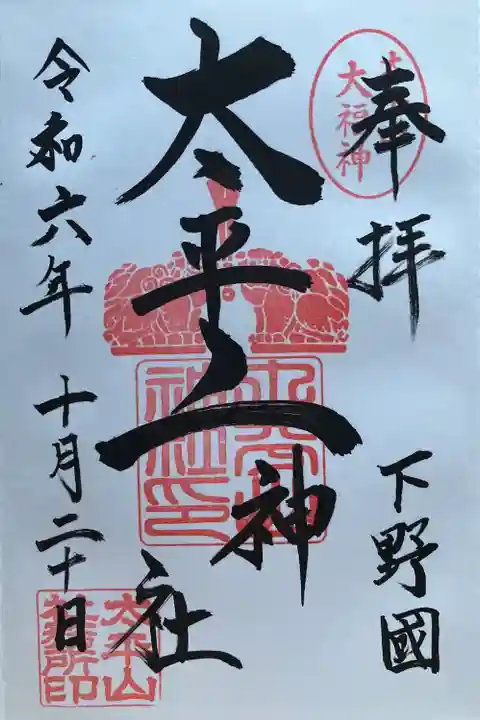 奉拝
下野國
太平山神社
令和六年 十月二十日
大福神
太平山神社印
太平山社務所印